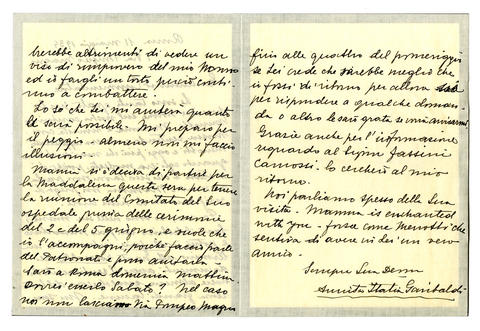 herebbe altrimenti di vedere un
viso di rimprovero del mio Nonno
ed io fargli un torto, perciò conti-
nuo a combattere.
Lo so che Lei mi aiuterà quanto
le sarà possibile. Mi preparo per
il peggio - almeno non mi faccio
illusioni.
Mamma si è decisa di partire per
la Maddalena questa sera per tenere
la riunione del Comitato del Suo
ospedale prima delle cerimonie
del 2 e del 5 giugno, e vuole che
io l'accompagni, poichè faccio parte
del Patronato e posso aiutarla.
Sarò a Roma domenica mattina.
Dovrei esserlo Sabato? Nel caso
noi non lasciamo Via Pompeo Magno
fino alle quattro del pomeriggio
se Lei crede che sarebbe meglio che
io fossi di ritorno per allora
per rispondere a qualche doman-
da o altro le sarò grata se vorrà avvisarmi.
Grazie anche per l'informazione
riguardo al Signor Fassini
Camossi. Lo cercherò al mio
ritorno.
Noi parliamo spesso della Sua
visita. Mamma is enchanted
with you - forse come Menotti che
sentiva di avere in Lei un vero
amico.
Sempre Sua Devma
Annita Italia Garibaldi